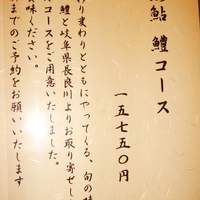 鮎 鱧 コース
一五七五〇円
り変わりとともにやってくる、旬の味
鱧と岐阜県長良川よりお取り寄せし
コースをご用意いたしました。
味ください。
までのご予約をお願いいたします